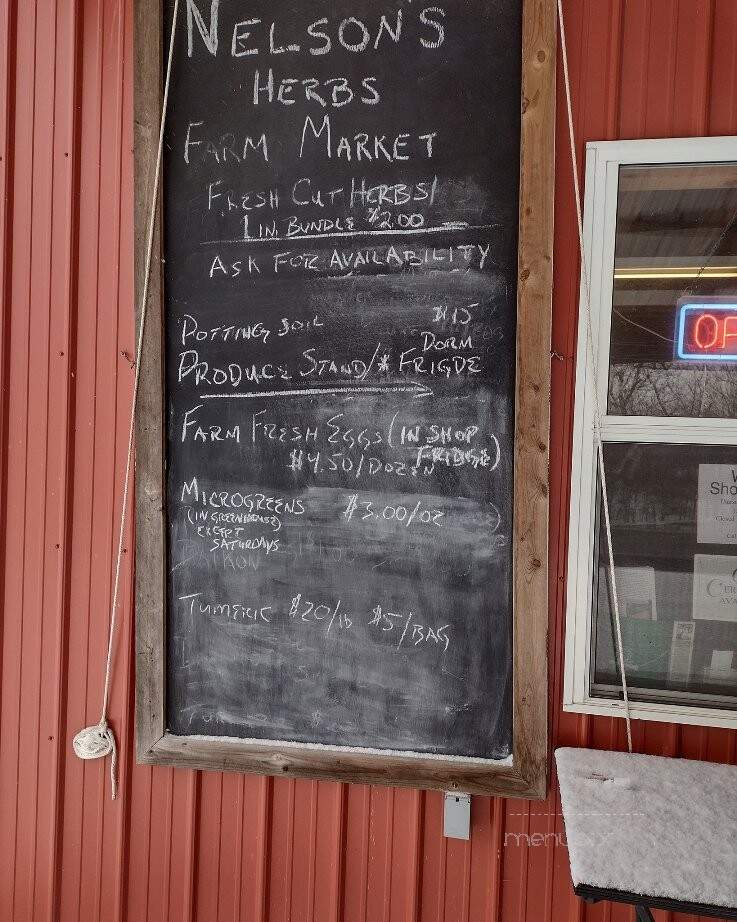 NELSON'S
HERBS
FARM MARKET
FRESH CUT HERBS/
1 IN. BUNDLE $2.00
ASK FOR AVAILABILITY
POTTING SOIL $15
PRODUCE STAND/* DORM
FRIGDE
FARM FRESH EGGS (IN SHOP
FRIDGE)
$4.50/DOZEN
MICROGREENS $3.00/OZ
(IN GREENHOUSE)
EXCEPT
SATURDAYS
DAIKON
TUMERIC $20/lb $5/BAG
OP
Sho
CER
AVA
menu